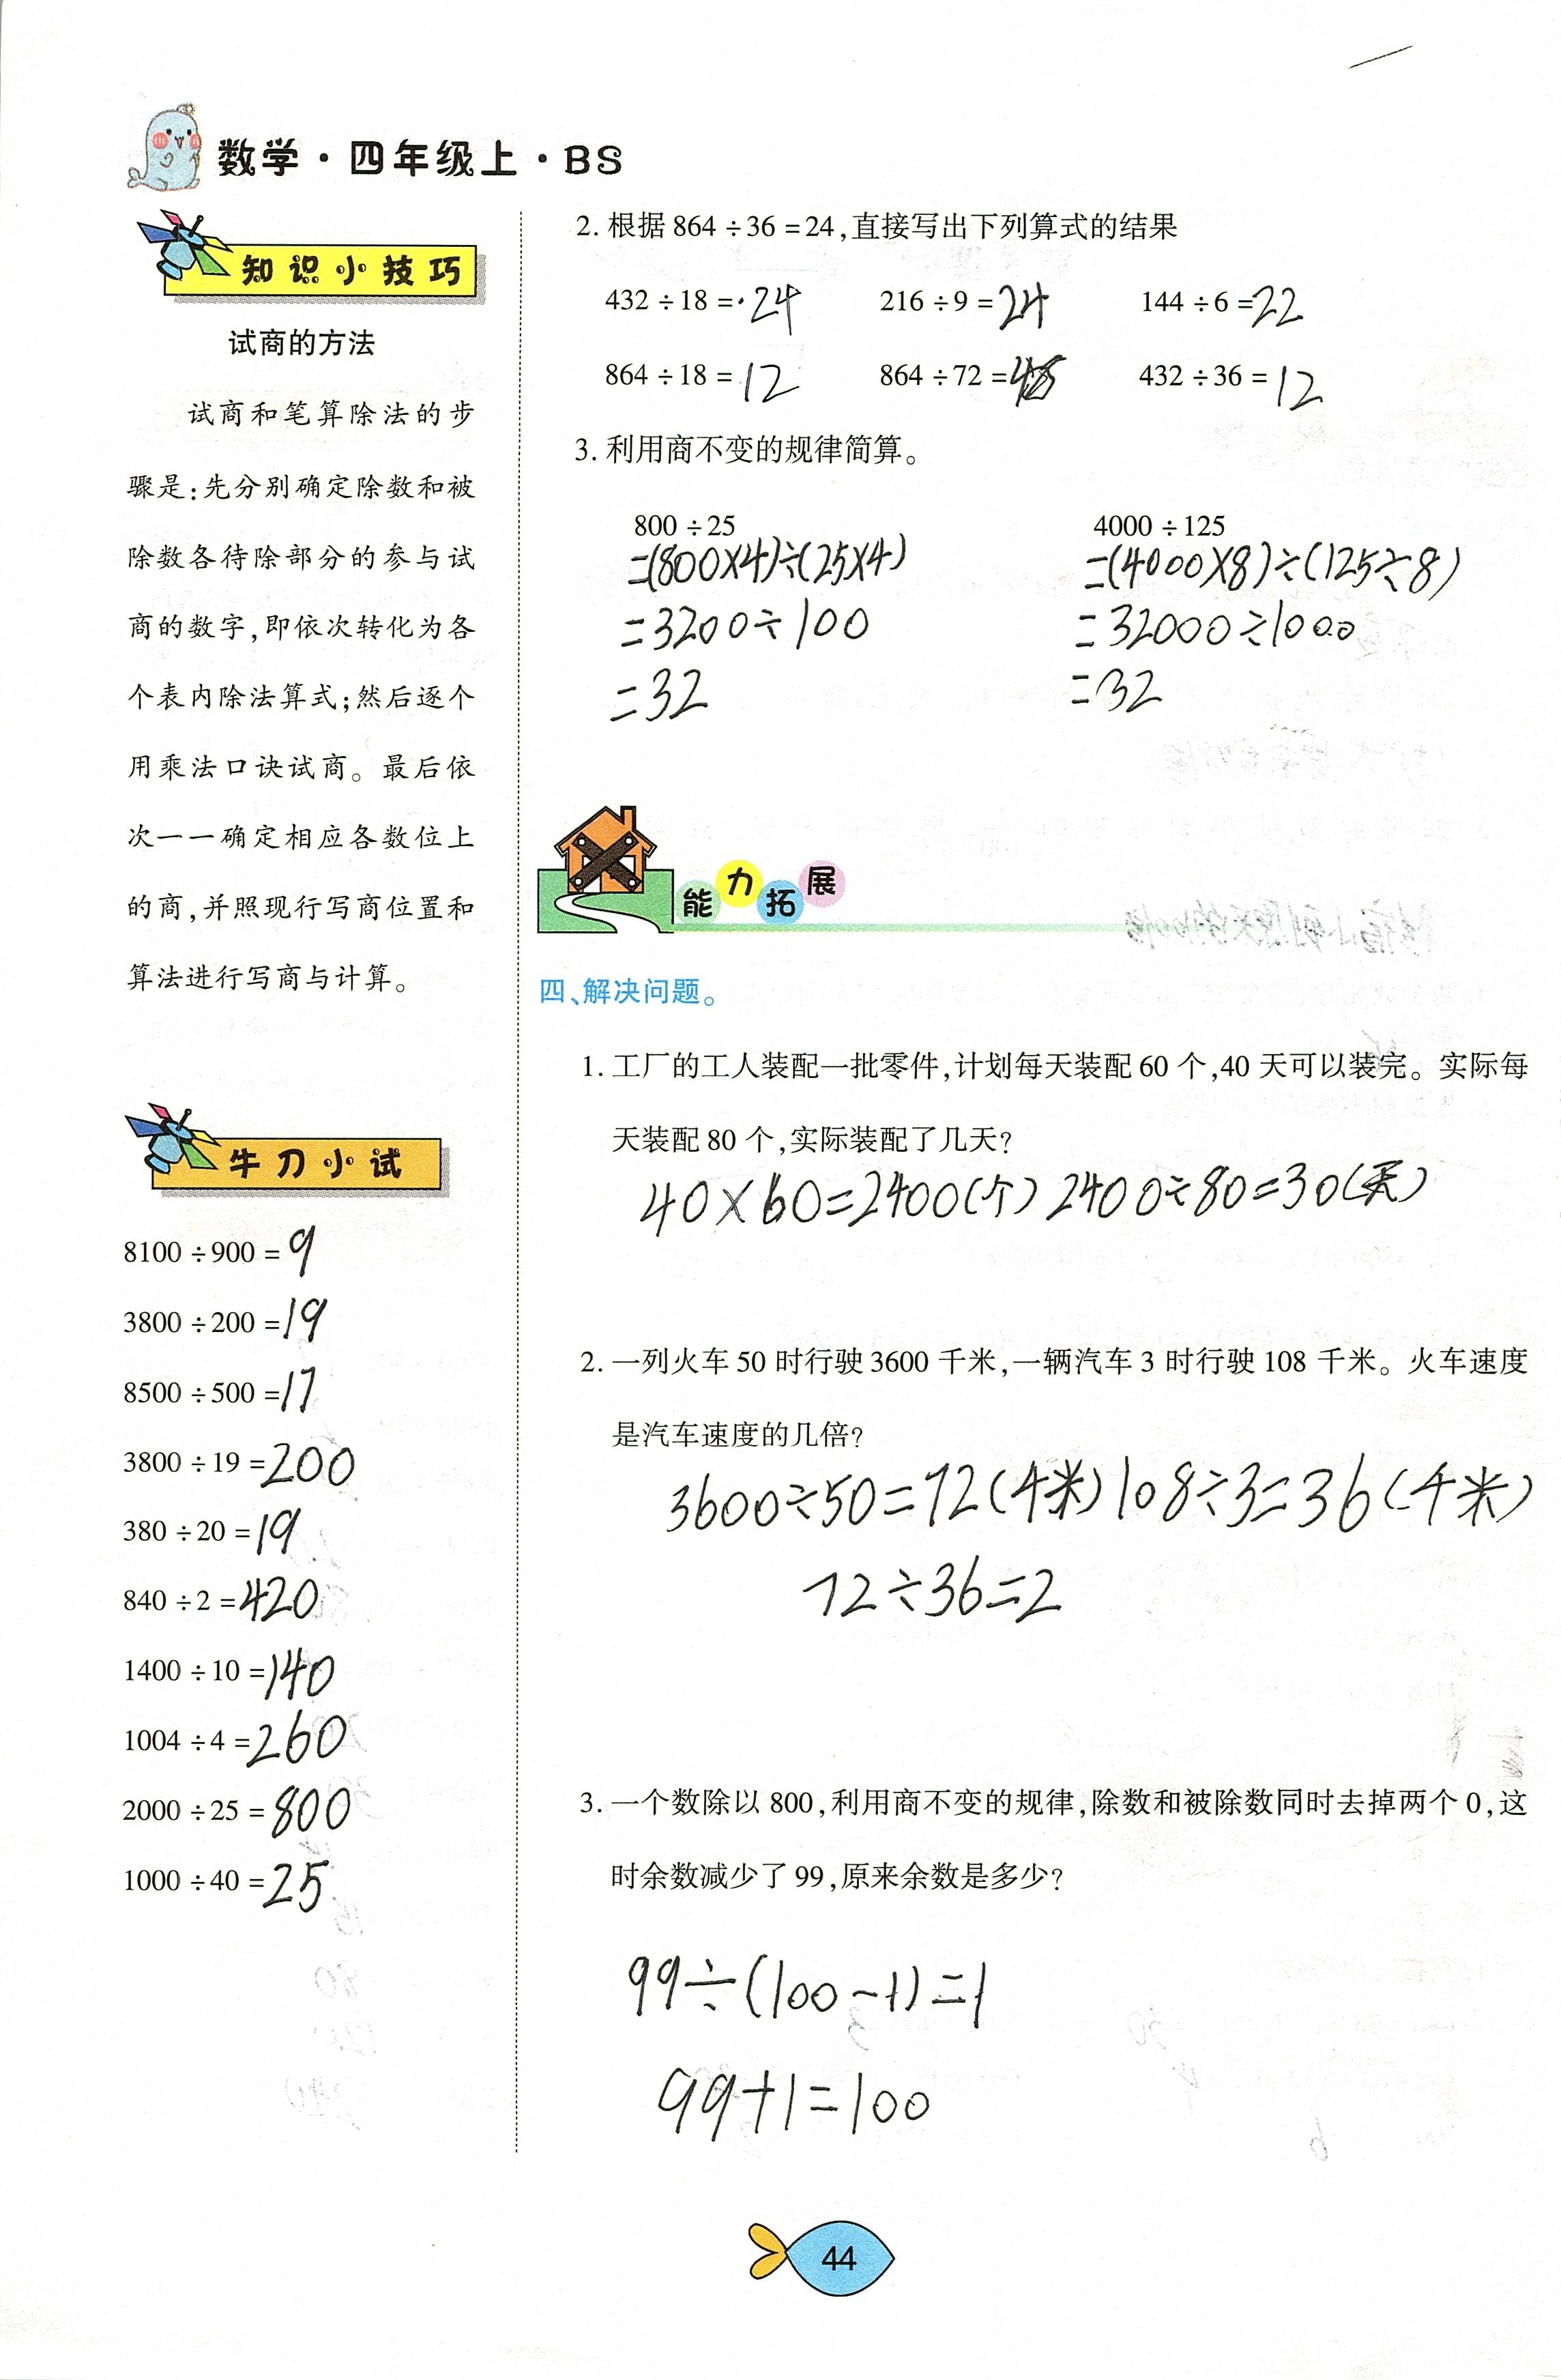 数学·四年级上·BS
知识小技巧
试商的方法
试商和笔算除法的步
骤是:先分别确定除数和被
除数各待除部分的参与试
商的数字,即依次转化为各
个表内除法算式;然后逐个
用乘法口诀试商。最后依
次一一确定相应各数位上
的商,并照现行写商位置和
算法进行写商与计算。
牛刀小试
8100÷900=9
3800÷200=19
8500÷500=17
3800÷19=200
380÷20=19
840÷2=420
1400÷10=140
1004÷4=260
2000÷25=800
1000÷40=25
2.根据864÷36=24,直接写出下列算式的结果
432÷18=24 216÷9=24 144÷6=22
864÷18=12 864÷72= 432÷36=12
3.利用商不变的规律简算。
800÷25 4000÷125
=(800×4)÷(25×4) =(4000×8)÷(125÷8)
=3200÷100 =32000÷1000
=32 =32
能力拓展
四、解决问题。
1.工厂的工人装配一批零件,计划每天装配60个,40天可以装完。实际每
天装配80个,实际装配了几天?
40×60=2400(个) 2400÷80=30(天)
2.一列火车50时行驶3600千米,一辆汽车3时行驶108千米。火车速度
是汽车速度的几倍?
3600÷50=72(千米) 108÷3=36(千米)
72÷36=2
3.一个数除以800,利用商不变的规律,除数和被除数同时去掉两个0,这
时余数减少了99,原来余数是多少?
99÷(100-1)=1
99+1=100
44